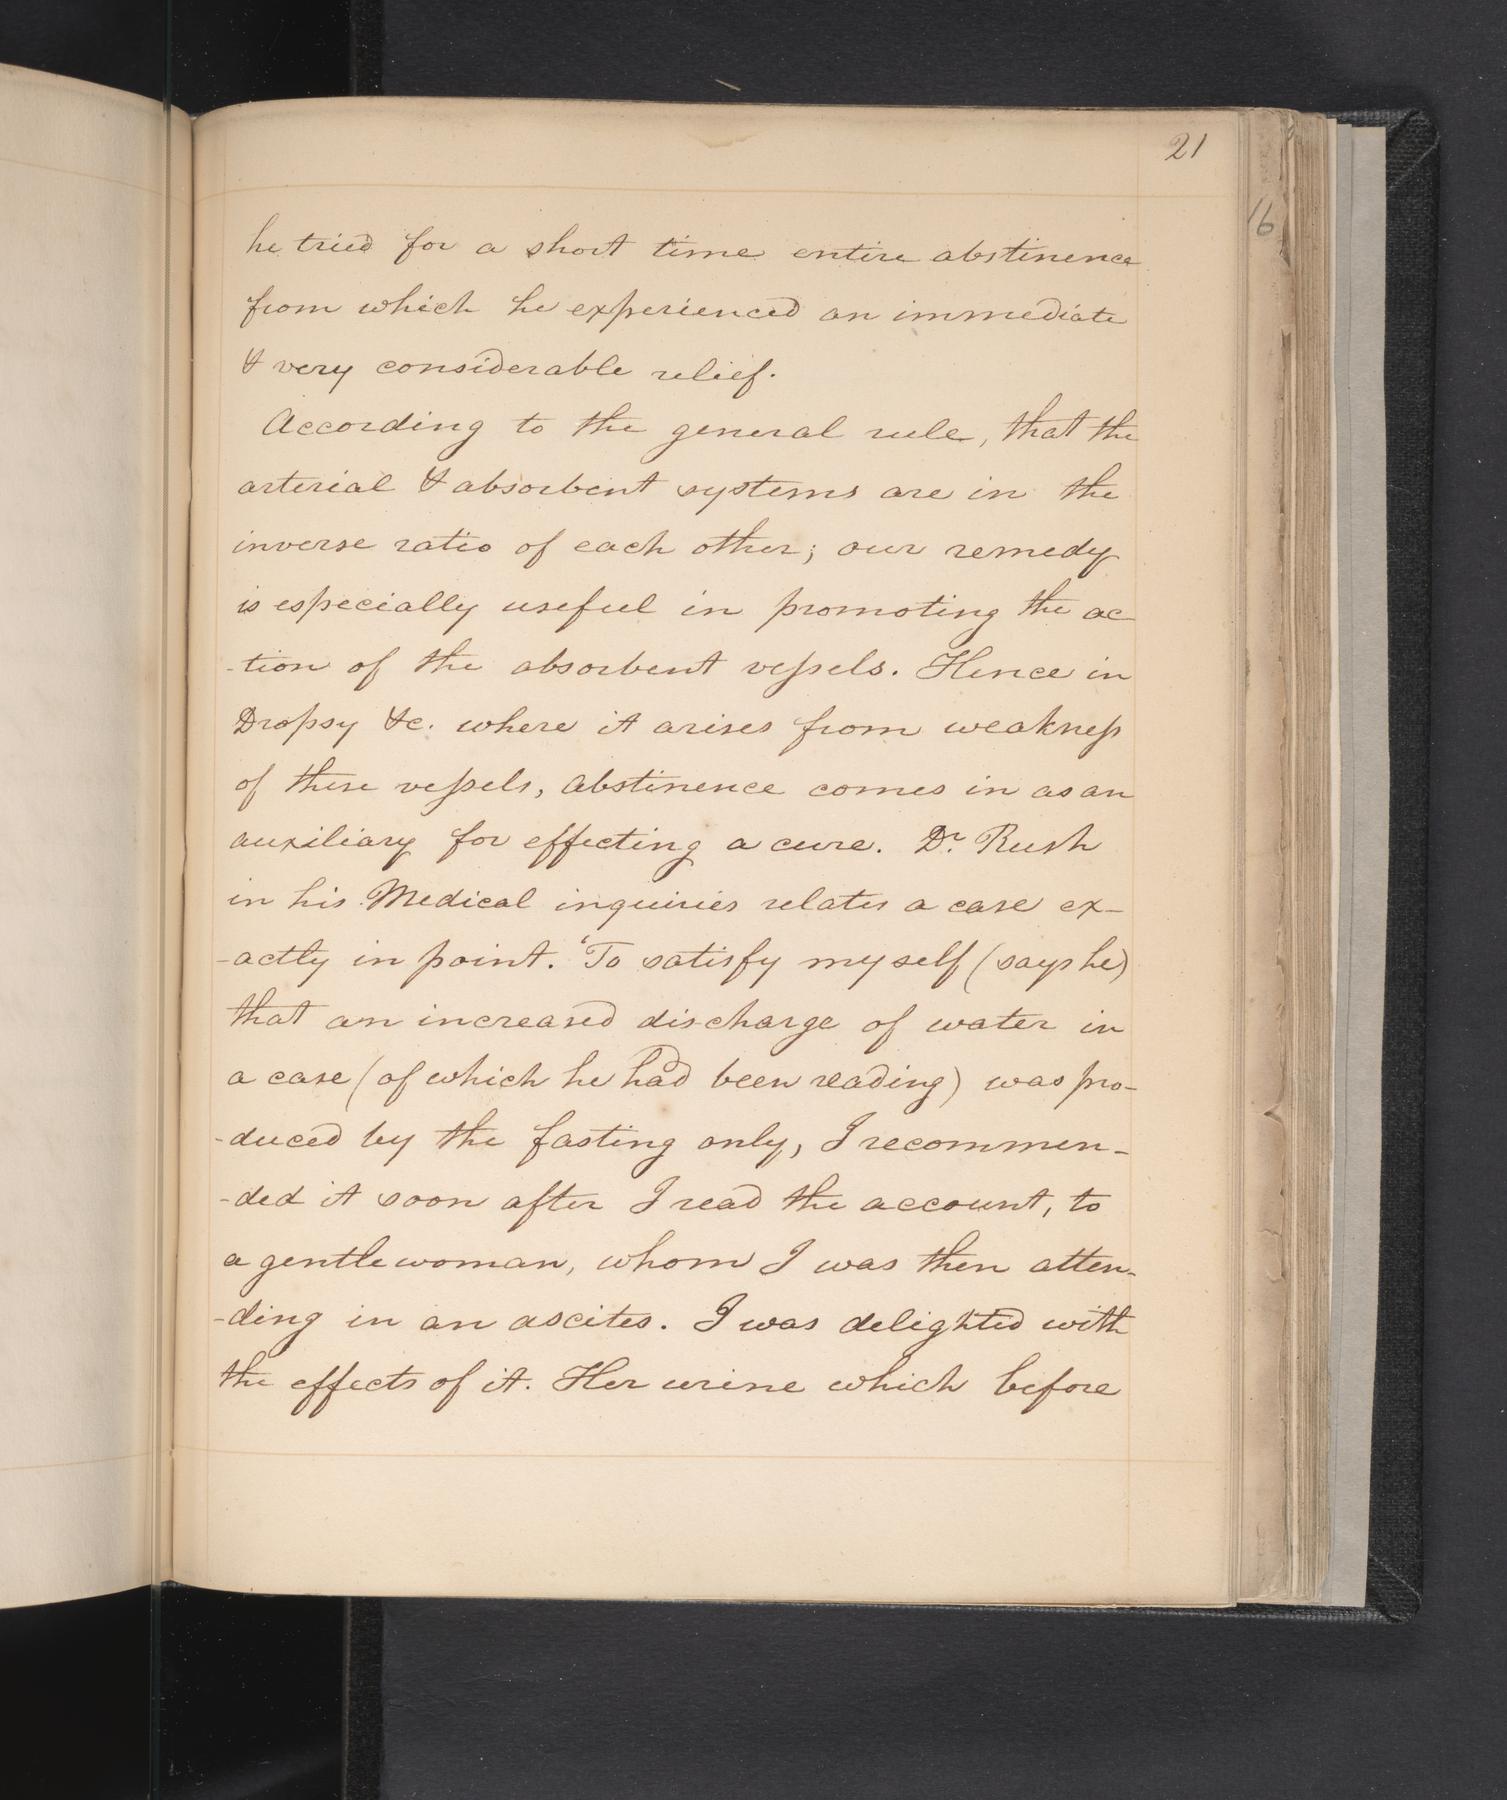 21
16
he tried for a short time entire abstinence
from which he experienced an immediate
& very considerable relief.
According to the general rule, that the
arterial & absorbent systems are in the
inverse ratio of each other; our remedy
is especially useful in promoting the ac-
-tion of the absorbent veſsels. Hence in
Dropsy &c. where it arises from weakneſs
of these veſsels, abstinence comes in as an
auxiliary for effecting a cure. Dr. Rush
in his Medical inquiries relates a case ex-
-actly in point. 'To satisfy myself (says he)
that an increased discharge of water in
a case (of which he had been reading) was pro-
-duced by the fasting only, I recommen-
-ded it soon after I read the account, to
a gentlewoman, whom I was then atten-
-ding in an ascites. I was delighted with
the effects of it. Her urine which before